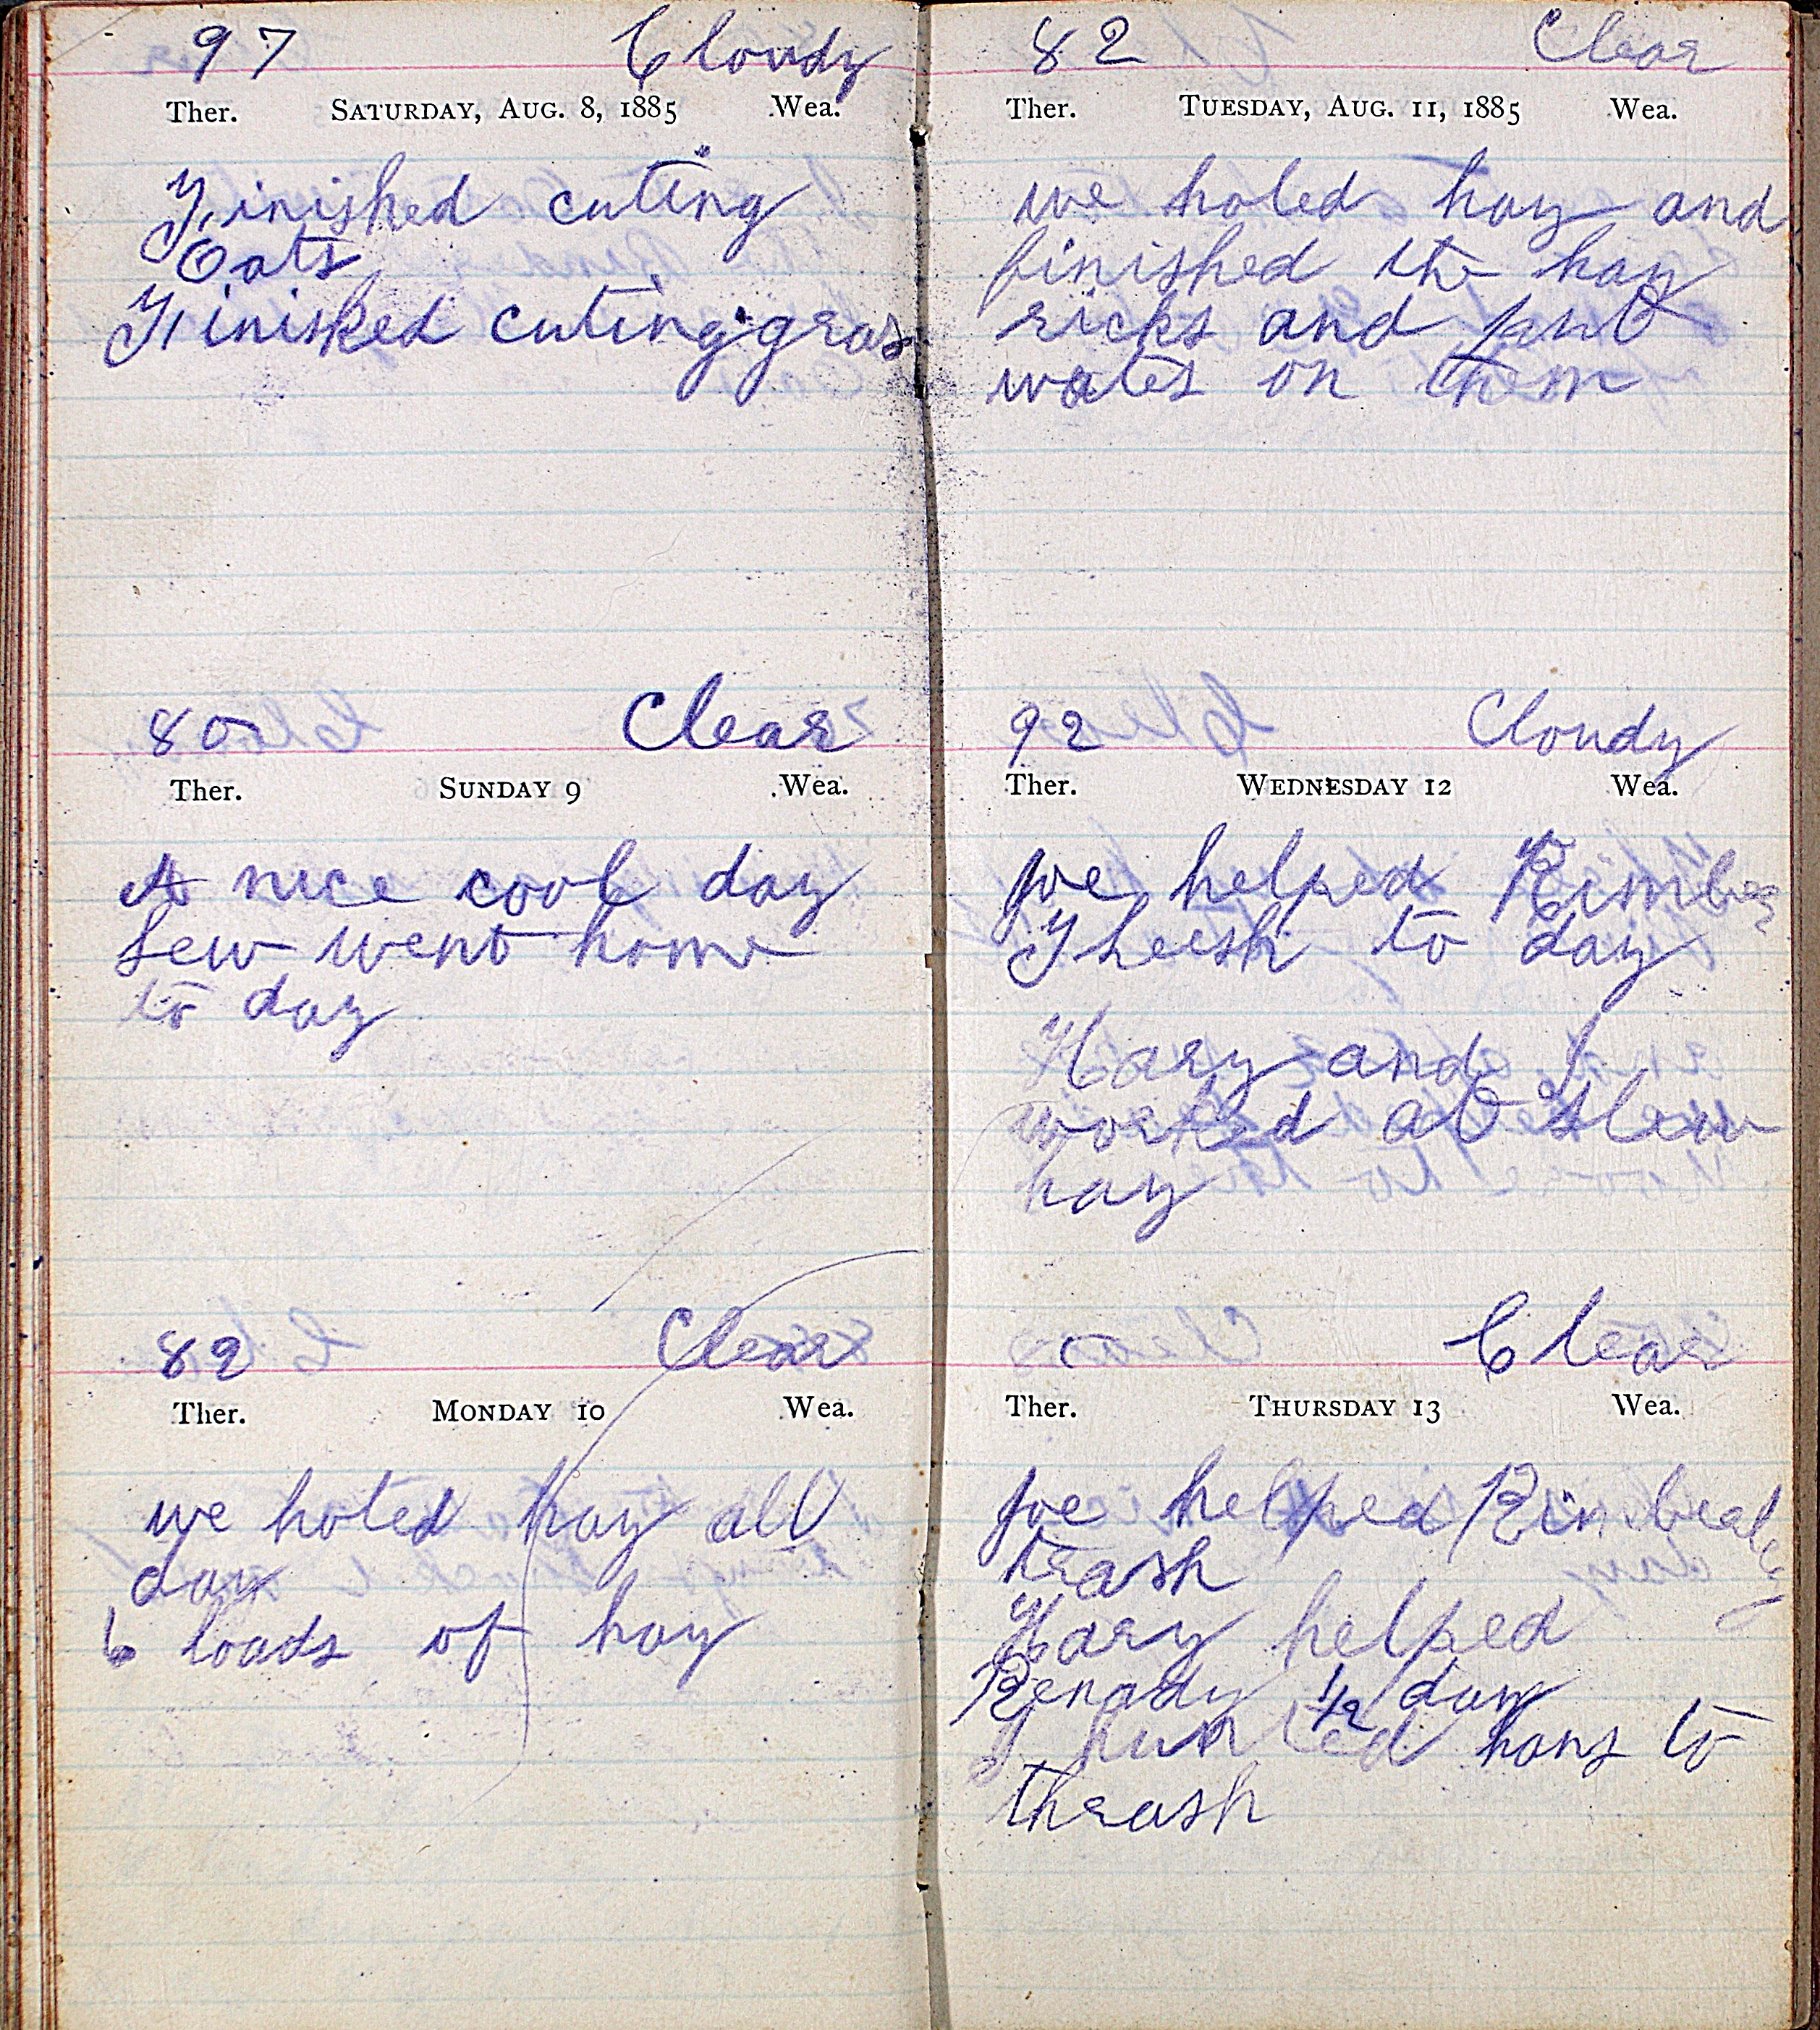 97 Cloudy
Ther. SATURDAY, AUG. 8, 1885 Wea.
Finished cuting
Oats
Finished cuting gras
80 Clear
Ther. SUNDAY 9 Wea.
A nice cool day
Lew went home
to day
89 Clear
Ther. MONDAY 10 Wea.
we holed hay all
day
6 loads of hay
82 Clear
Ther. TUESDAY, AUG. 11, 1885 Wea.
we holed hay and
finished the hay
ricks and put
wates on them
92 Cloudy
Ther. WEDNESDAY 12 Wea.
Joe helped
to day
Hary and I
worked at slew
hay
Clear
Ther. THURSDAY 13 Wea.
Joe helped
trash
Hary helped
Kenady 1/2 day
I hunted hans to
thrash